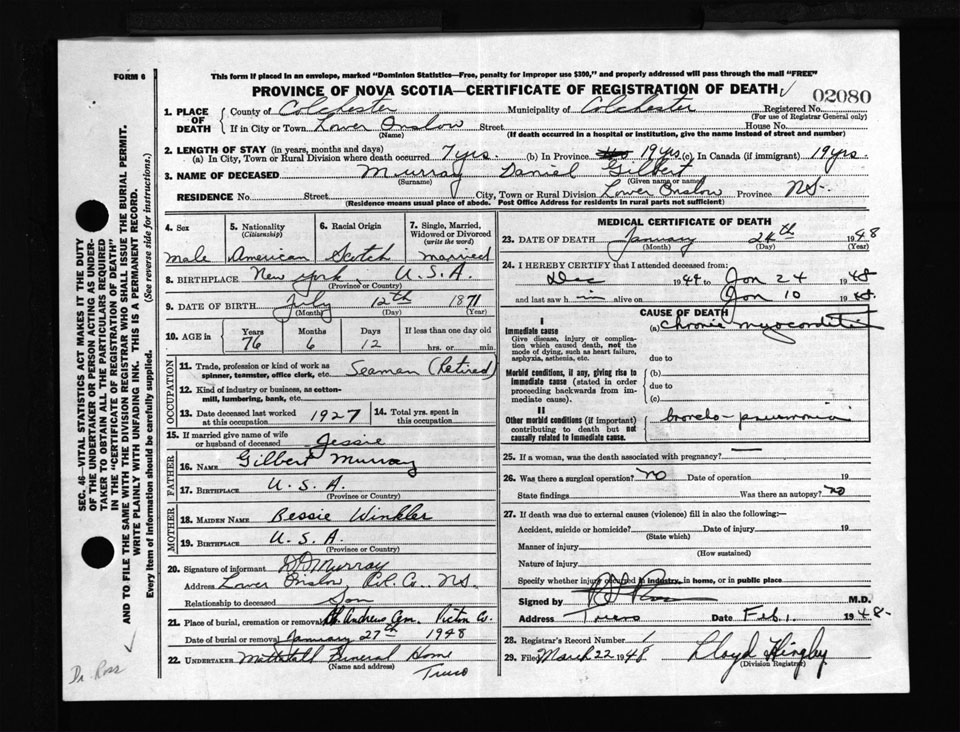 FORM 6
This form if placed in an envelope, marked "Dominion Statistics—Free, penalty for improper use $300," and properly addressed will pass through the mail "FREE"
PROVINCE OF NOVA SCOTIA—CERTIFICATE OF REGISTRATION OF DEATH
02080
1. PLACE OF DEATH
County of Colchester Municipality of Colchester Registered No.
(For use of Registrar General only)
If in City or Town Lower Onslow Street House No.
(Name) (If death occurred in a hospital or institution, give the name instead of street and number)
2. LENGTH OF STAY (in years, months and days)
(a) In City, Town or Rural Division where death occurred 7 yrs. (b) In Province 19 yrs (c) In Canada (if immigrant) 19 yrs.
3. NAME OF DECEASED Murray Daniel Gilbert
(Surname) (Given name or names)
RESIDENCE No. Street City, Town or Rural Division Lower Onslow Province NS.
(Residence means usual place of abode. Post Office Address for residents in rural parts not sufficient)
4. Sex
Male
5. Nationality
(Citizenship)
American
6. Racial Origin
Scotch
7. Single, Married, Widowed or Divorced
(write the word)
married
8. BIRTHPLACE New York, U.S.A.
(Province or Country)
9. DATE OF BIRTH July 12th 1871
(Month) (Day) (Year)
10. AGE in Years Months Days If less than one day old
76 6 12 hrs. or min.
OCCUPATION
11. Trade, profession or kind of work as spinner, teamster, office clerk, etc. Seaman (Retired)
12. Kind of industry or business, as cotton-mill, lumbering, bank, etc.
13. Date deceased last worked at this occupation 1927
14. Total yrs. spent in this occupation
15. If married give name of wife or husband of deceased Jessie
FATHER
16. NAME Gilbert Murray
17. BIRTHPLACE U.S.A.
(Province or Country)
MOTHER
18. MAIDEN NAME Bessie Winkler
19. BIRTHPLACE U.S.A.
(Province or Country)
20. Signature of informant Murray
Address Lower Onslow, Col. Co. NS.
Relationship to deceased Son
21. Place of burial, cremation or removal St. Andrews Cem. Pictou Co.
Date of burial or removal January 27th 1948
22. UNDERTAKER Mattatall Funeral Home
(Name and address)
Truro
MEDICAL CERTIFICATE OF DEATH
23. DATE OF DEATH January 24th 1948
(Month) (Day) (Year)
24. I HEREBY CERTIFY that I attended deceased from:
Dec 194 to Jan 24 1948
and last saw him alive on Jan 10 1948.
CAUSE OF DEATH
I
Immediate cause
Give disease, injury or complication which caused death, not the mode of dying, such as heart failure, asphyxia, asthenia, etc.
(a) Chronic myocarditis
due to
Morbid conditions, if any, giving rise to immediate cause (stated in order proceeding backwards from immediate cause).
(b)
due to
(c)
II
Other morbid conditions (if important) contributing to death but not causally related to immediate cause.
broncho-pneumonia
25. If a woman, was the death associated with pregnancy? —
26. Was there a surgical operation? no Date of operation 19
State findings Was there an autopsy? no
27. If death was due to external causes (violence) fill in also the following:—
Accident, suicide or homicide? Date of injury 19
(State which)
Manner of injury
(How sustained)
Nature of injury
Specify whether injury occurred in industry, in home, or in public place
Signed by Ross M.D.
Address Truro Date Feb. 1. 1948.
28. Registrar's Record Number 1
29. Filed March 22 1948 Lloyd Hingley
(Division Registrar)
SEC. 46—VITAL STATISTICS ACT MAKES IT THE DUTY
OF THE UNDERTAKER OR PERSON ACTING AS UNDER-
TAKER TO OBTAIN ALL THE PARTICULARS REQUIRED
IN THE "CERTIFICATE OF REGISTRATION OF DEATH"
AND TO FILE THE SAME WITH THE DIVISION REGISTRAR WHO SHALL ISSUE THE BURIAL PERMIT.
WRITE PLAINLY WITH UNFADING INK. THIS IS A PERMANENT RECORD.
Every item of information should be carefully supplied. (See reverse side for instructions.)
Dr. Ross